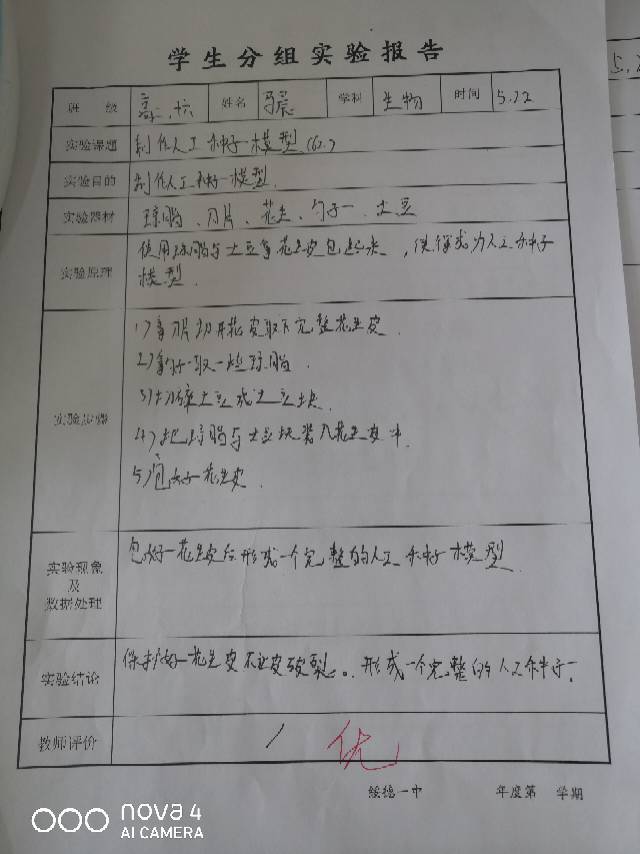 学生分组实验报告
班级 高二、十六 姓名 学科 生物 时间 5.22
实验课题 制作人工种子模型
实验目的 制作人工种子模型.
实验器材 琼脂、刀片、花生、勺子、土豆
实验原理 使用琼脂与土豆等花生皮包起来,使得成为人工种子
模型.
实验步骤
1)拿刀片切开花生皮取下完整花生皮.
2)拿勺子取一些琼脂.
3)切碎土豆成土豆块.
4)把琼脂与土豆块装入花生皮中.
5)包好花生皮.
实验现象
及
数据处理
包好花生皮后形成一个完整的人工种子模型
实验结论 保护好花生皮不让皮破裂。形成一个完整的人工种子.
教师评价 优
绥德一中 年度第 学期
nova 4
AI CAMERA
5.2